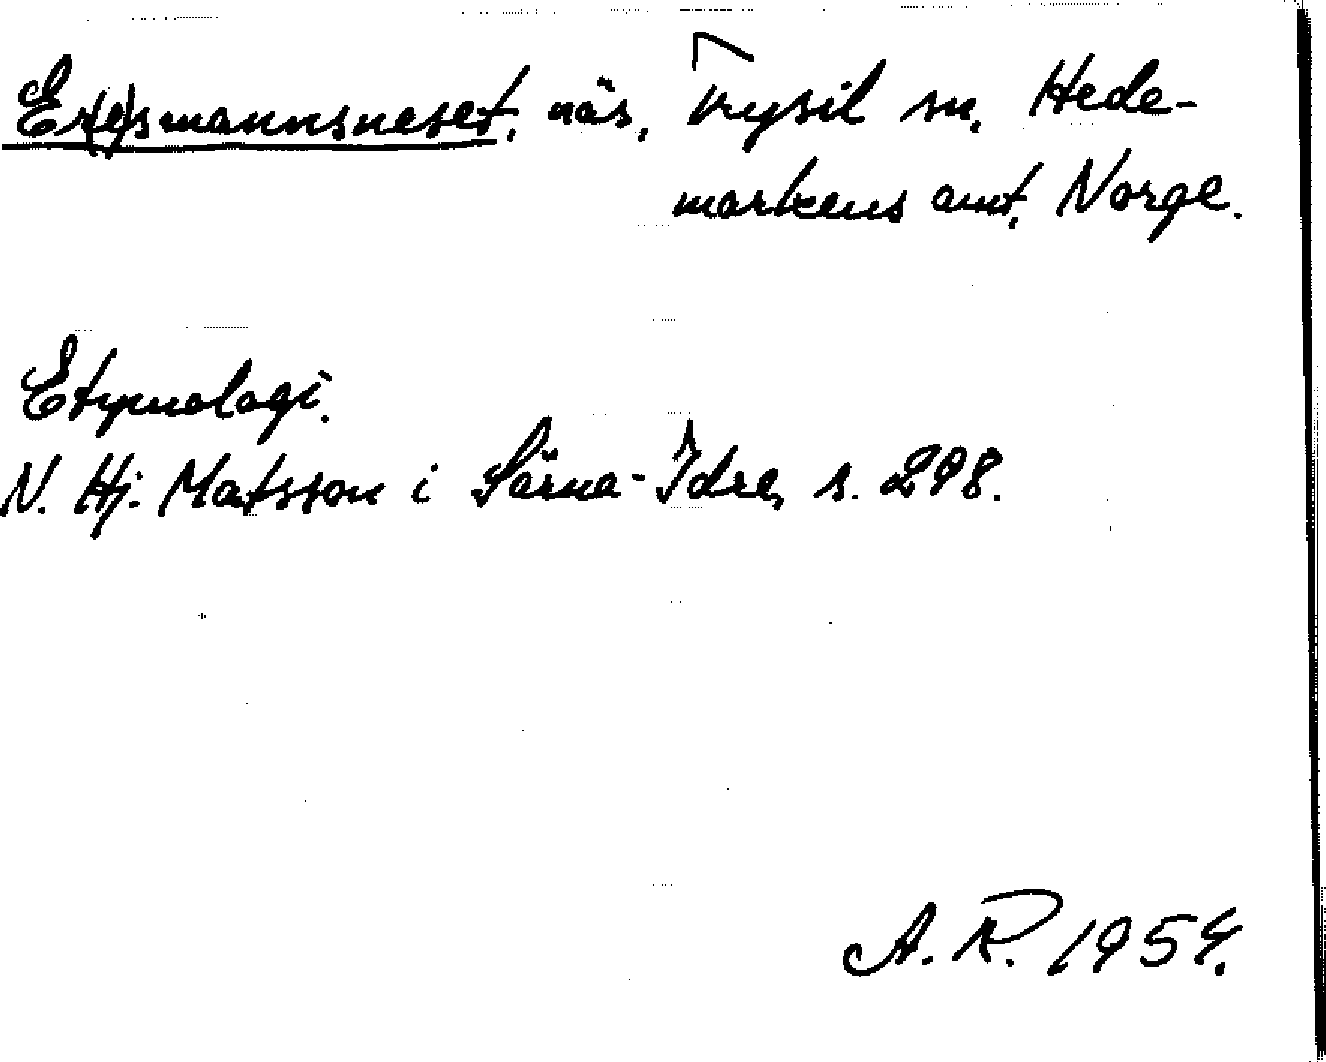 Er(e)smannsneset, näs, Trysil sn, Hede-
markens amt, Norge.
Etymologi.
N. Hj. Matsson i Särna-Idre, s. 298.
A. R. 1954.